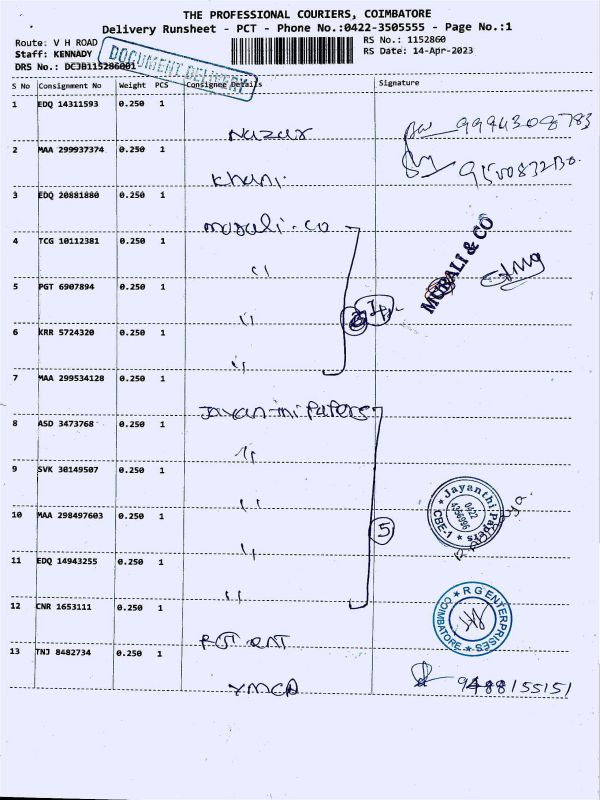 THE PROFESSIONAL COURIERS, COIMBATORE
Delivery Runsheet - PCT - Phone No.:0422-3505555 - Page No.:1
Route: V H ROAD
Staff: KENNADY
DRS No.: DCJB115286001
DOCUMENT DELIVERY
RS No.: 1152860
RS Date: 14-Apr-2023
S No Consignment No Weight PCS Consignee Details Signature
1 EDQ 14311593 0.250 1
Nazar 9994308783
2 MAA 299937374 0.250 1
Khani.
3 EDQ 20881880 0.250 1
murali-co
4 TCG 10112381 0.250 1
MURALI & CO
"
5 PGT 6907894 0.250 1
"
6 KRR 5724320 0.250 1
"
7 MAA 299534128 0.250 1
Jayanthi Papers
8 ASD 3473768 0.250 1
"
9 SVK 30149507 0.250 1
"
Jayanthi Papers
0422
4356996
CBE-1
10 MAA 298497603 0.250 1
5
"
11 EDQ 14943255 0.250 1
"
12 CNR 1653111 0.250 1
R G ENTERPRISES
COIMBATORE
13 TNJ 8482734 0.250 1
YMCA 9488155151